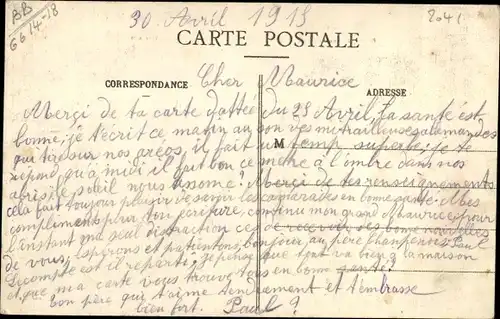 BB
66 14-18
30 Avril 1915
2041
CARTE POSTALE
CORRESPONDANCE
Cher Maurice
ADRESSE
Merçi de ta carte du 25 Avril, ta santé est
bonne, je t'ecrit ce matin au son des mitrailleuses alemandes
qui tire sur nos aréos, il fait un temp superbe, je te
M
repond qu'a midi il fait bon ce metre à l'ombre dans nos
abris, le soleil nous assome? Merçi de tes renseignements
cela fait toujour plaisir de savoir les camarades en bonne santé. Mes
compliments pour ton ecriture, continu mon grand Maurice, pour
l'instant ma seul distraction ces de recevoir des bonne nouvelles
de vous, esperons et patientons, bonjour au père Paul
Lecompte est il reparti, je pense que tout va bien à la maison
et que ma carte vous trouve tous en bonne santé,
bon père qui t'aime tendrement et t'embrasse
bien fort. Paul?